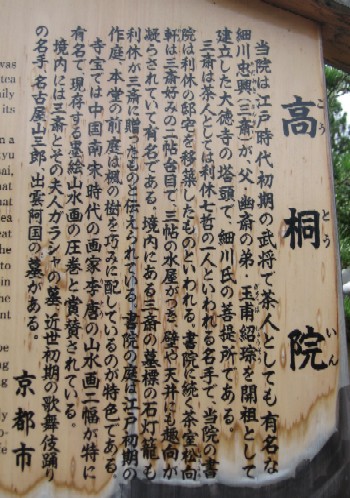 高桐院
こう とう いん
当院は江戸時代初期の武将で茶人としても有名な
細川忠興(三斎)が、父・幽斎の弟・玉甫紹琮を開祖として
建立した大徳寺の塔頭で、細川氏の菩提所である。
三斎は茶人としては利休七哲の一人といわれる名手で、当院の書
院は利休の邸宅を移築したものといわれる。書院に続く茶室松向
軒は三斎好みの二帖台目で、三帖の水屋がつき、壁や天井にも趣向が
凝らされていて有名である。境内にある三斎の墓標の石灯籠も
利休が三斎に贈ったものと伝えられている。書院の庭は江戸初期の
作庭、本堂の前庭は楓の樹を巧みに配しているのが特色である。
寺宝では中国南宋時代の画家・李唐の山水画二幅が特に
有名で、現存する墨絵山水画の圧巻と賞賛されている。
境内には三斎とその夫人ガラシャの墓、近世初期の歌舞伎踊り
の名手、名古屋山三郎、出雲阿国の墓がある。
京都市